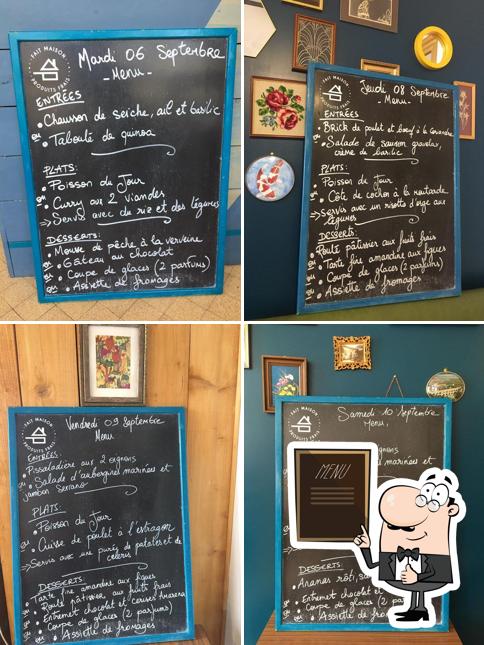 FAIT MAISON
PRODUITS FRAIS
Mardi 06 Septembre
- Menu -
ENTRÉES
• Chausson de seiche, ail et basilic
ou • Taboulé de quinoa
PLATS:
• Poisson du Jour
ou • Curry aux 2 viandes
⇒ Servis avec du riz et des légumes
DESSERTS:
• Mousse de pêche à la verveine
ou • Gâteau au chocolat
ou • Coupe de glaces (2 parfums)
ou • Assiette de fromages
FAIT MAISON
PRODUITS FRAIS
Jeudi 08 Septembre
- Menu -
ENTRÉES
• Brick de poulet et boeuf à la coriandre
ou • Salade de saumon gravelax,
crème de basilic
PLATS:
• Poisson du Jour
ou • Côte de cochon à la moutarde
⇒ Servis avec un risotto d'orge aux
légumes
DESSERTS:
Roulé pâtissier aux fruits frais
ou • Tarte fine amandine aux figues
ou • Coupe de glaces (2 parfums)
ou • Assiette de fromages
FAIT MAISON
PRODUITS FRAIS
Vendredi 09 Septembre
Menu
ENTRÉES
• Pissaladière aux 2 oignons
ou • Salade d'aubergines marinées et
jambon Serrano
PLATS:
• Poisson du Jour
ou • Cuisse de poulet à l'estragon
⇒ Servis avec une purée de patates et de
céleris
DESSERTS:
• Tarte fine amandine aux figues
ou • Roulé pâtissier aux fruits frais
ou • Entremet chocolat et cerises Amarena
ou • Coupe de glaces (2 parfums)
ou • Assiette de fromages
FAIT MAISON
PRODUITS FRAIS
Samedi 10 Septembre
Menu,
marinées et
MENU
DESSERTS:
Ananas rôti,
ou • Entremet chocolat et
ou • Coupe de glaces (2
ou • Assiette de